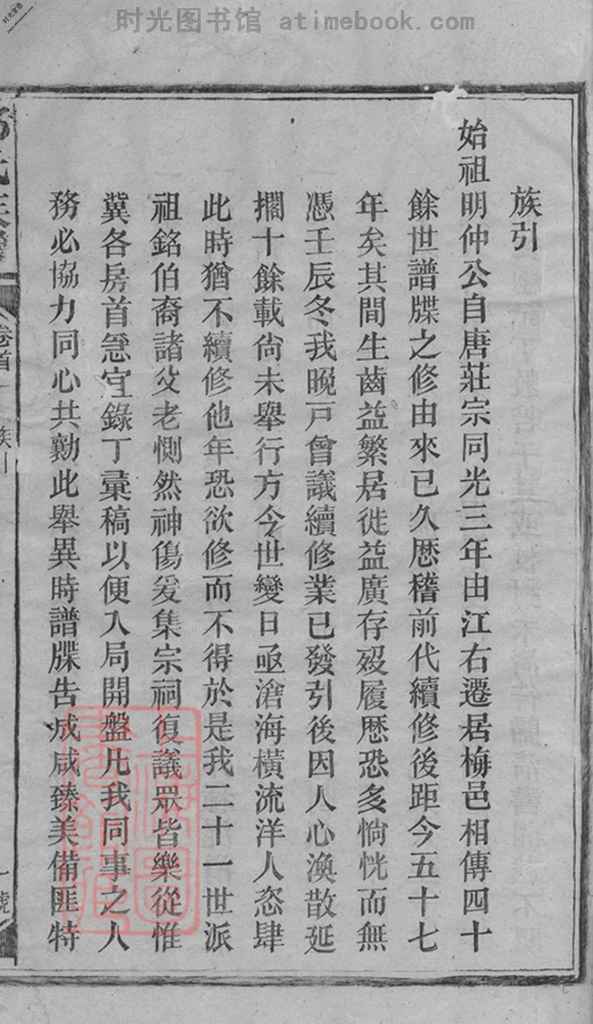 时光图书馆 atimebook.com
族引
始祖明仲公自唐莊宗同光三年由江右遷居梅邑相傳四十
餘世譜牒之修由來已久厯稽前代續修後距今五十七
年矣其間生齒益繁居徙益廣存歿履厯恐多惝恍而無
憑壬辰冬我晚戸曾議續修業已發引後因人心渙散延
擱十餘載尙未舉行方今世變日亟滄海橫流洋人恣肆
此時猶不續修他年恐欲修而不得於是我二十一世派
祖銘伯裔諸父老惻然神傷爰集宗祠復議眾皆樂從惟
冀各房首急宜錄丁彙稿以便入局開盤凡我同事之人
務必協力同心共勷此舉異時譜牒告成咸臻美備匪特
卷首
族引
一號